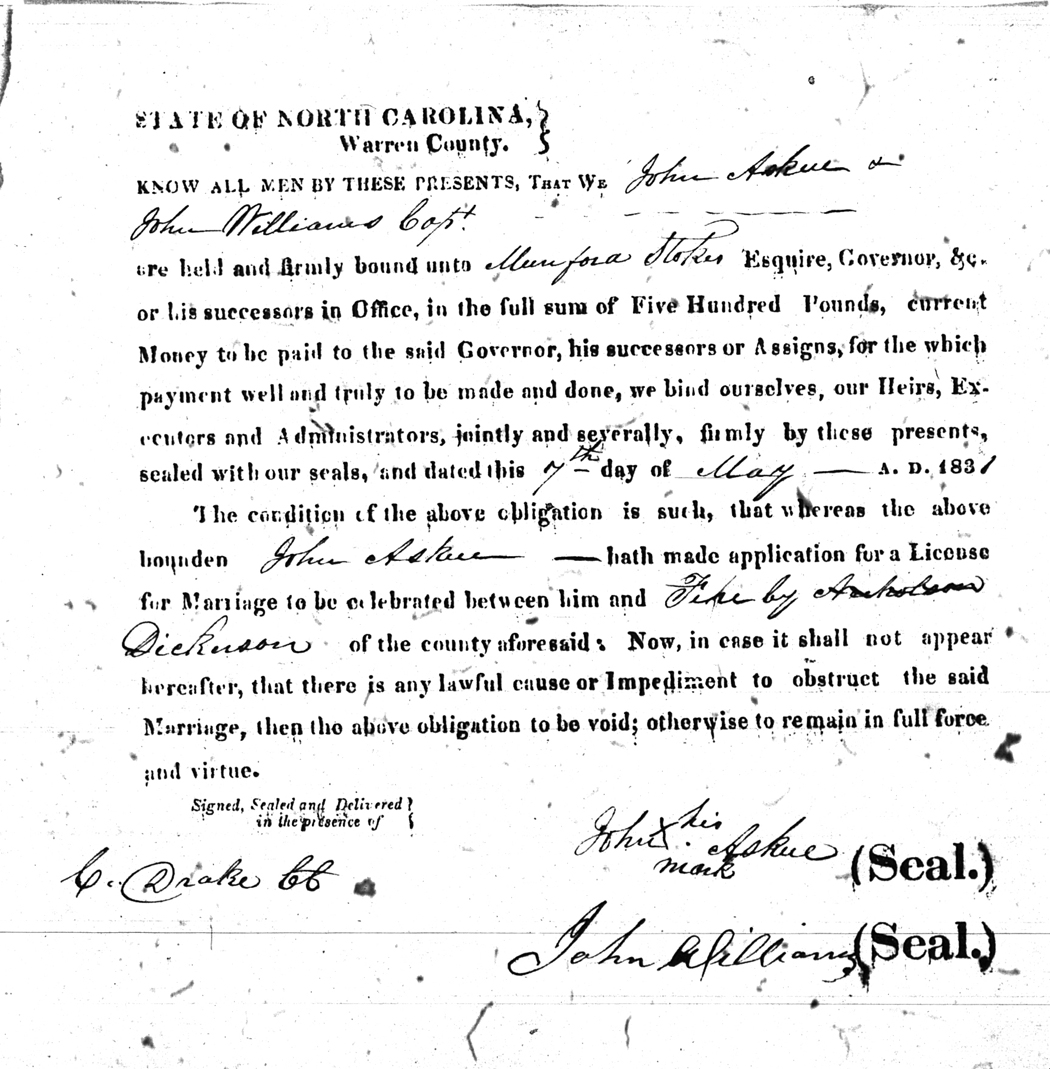 STATE OF NORTH CAROLINA,
Warren County.
KNOW ALL MEN BY THESE PRESENTS, THAT WE John Askue &
John Williams Capt.
are held and firmly bound unto Munford Stokes Esquire, Governor, &c.
or his successors in Office, in the full sum of Five Hundred Pounds, current
Money to be paid to the said Governor, his successors or Assigns, for the which
payment well and truly to be made and done, we bind ourselves, our Heirs, Ex-
ecutors and Administrators, jointly and severally, firmly by these presents,
sealed with our seals, and dated this 7th day of May — A. D. 1831
The condition of the above obligation is such, that whereas the above
bounden John Askue — hath made application for a License
for Marriage to be celebrated between him and by
Dickerson of the county aforesaid: Now, in case it shall not appear
hereafter, that there is any lawful cause or Impediment to obstruct the said
Marriage, then the above obligation to be void; otherwise to remain in full force
and virtue.
Signed, Sealed and Delivered
in the presence of
John his X mark Askue (Seal.)
C. Drake
John Williams (Seal.)